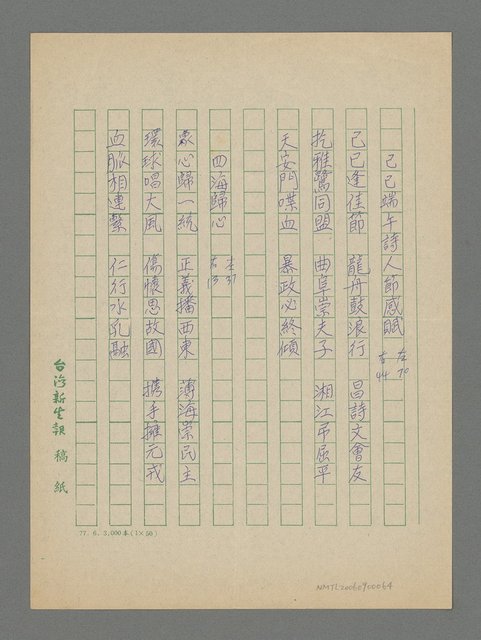 己巳端午詩人節感賦 左70 右44
己巳逢佳節 龍舟鼓浪行 昌詩文會友
扢雅鷺同盟 曲阜崇夫子 湘江弔屈平
天安門喋血 暴政必終傾
四海歸心 左37 右13
眾心歸一統 正義播西東 薄海崇民主
環球唱大風 傷懷思故國 携手擁元戎
血脈相連繫 仁行水乳融
台灣新生報 稿紙
77. 6. 3,000本(1×50)
NMTL20060900064